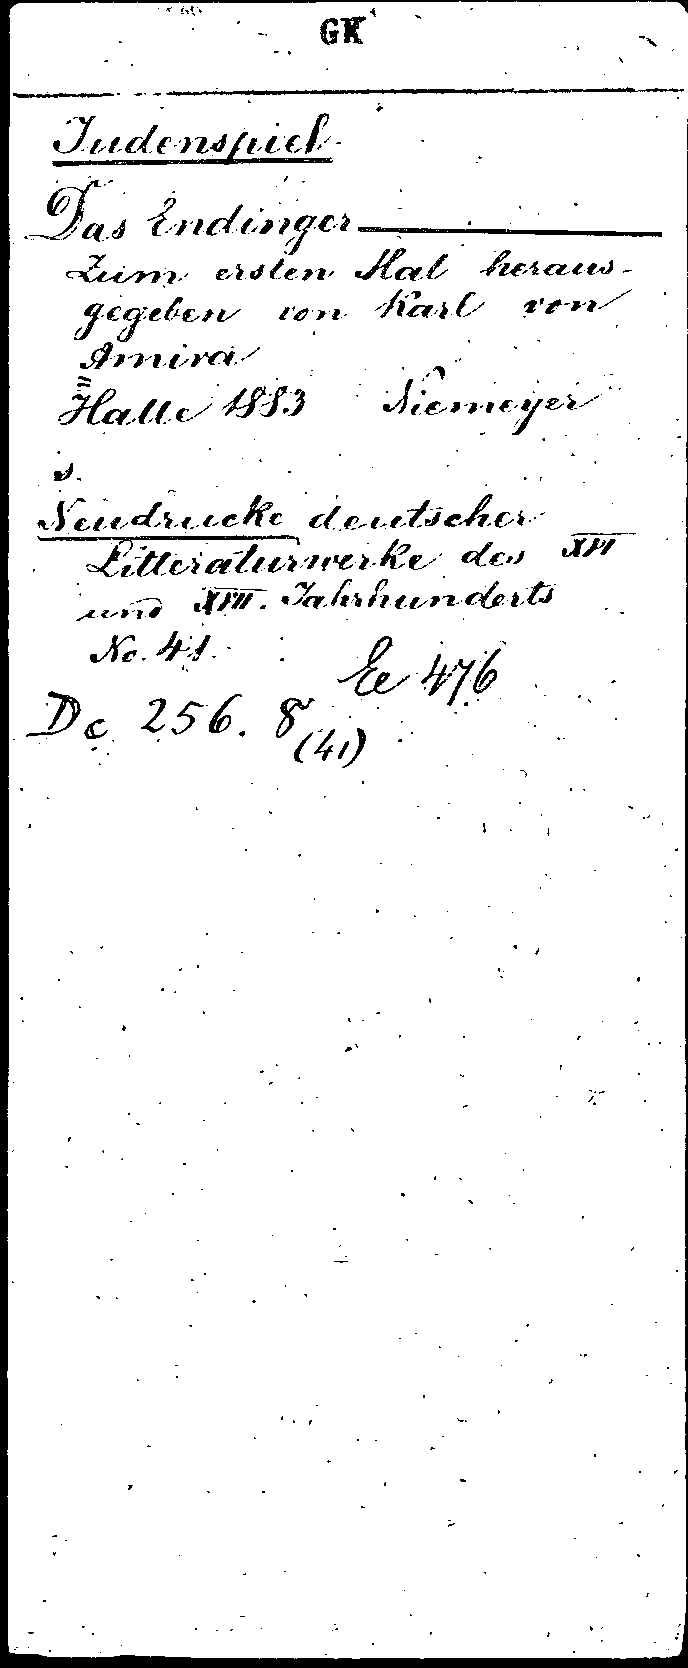 GK
Judenspiel
Das Endinger
Zum ersten Mal heraus-
gegeben von Karl von
Amira
Halle 1883 Niemeyer
s.
Neudrucke deutscher
Litteraturwerke des XVI
und XVII. Jahrhunderts
No. 41.
Ee 476
Dc 256. 8
(41)